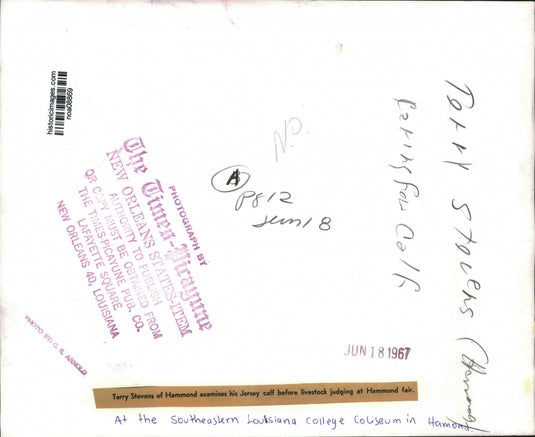 historicimages.com
noa08869
N.O.
A
Pg 12
Jun 18
Terry Stevens (Hammond)
for calf
PHOTOGRAPH BY
The Times-Picayune
NEW ORLEANS STATES-ITEM
AUTHORITY TO PUBLISH
OR COPY MUST BE OBTAINED FROM
THE TIMES-PICAYUNE PUB. CO.
LAFAYETTE SQUARE
NEW ORLEANS 40, LOUISIANA
PHOTO BY G. E. ARNOLD
JUN 18 1967
Terry Stevens of Hammond examines his Jersey calf before livestock judging at Hammond fair.
At the Southeastern Louisiana College Coliseum in Hamond.